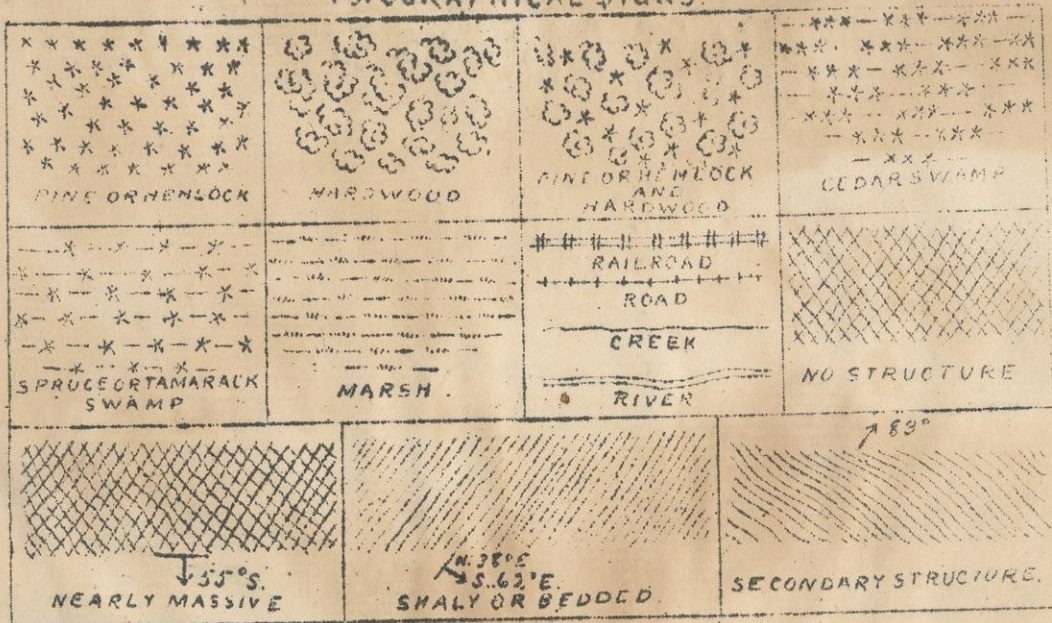 TOPOGRAPHICAL SIGNS.
PINE OR HEMLOCK
HARDWOOD
PINE OR HEMLOCK
AND
HARDWOOD
CEDAR SWAMP
SPRUCE OR TAMARACK
SWAMP
MARSH
RAILROAD
ROAD
CREEK
RIVER
NO STRUCTURE
55°S.
NEARLY MASSIVE
N. 38°E
S. 62°E.
SHALY OR BEDDED.
83°
SECONDARY STRUCTURE.